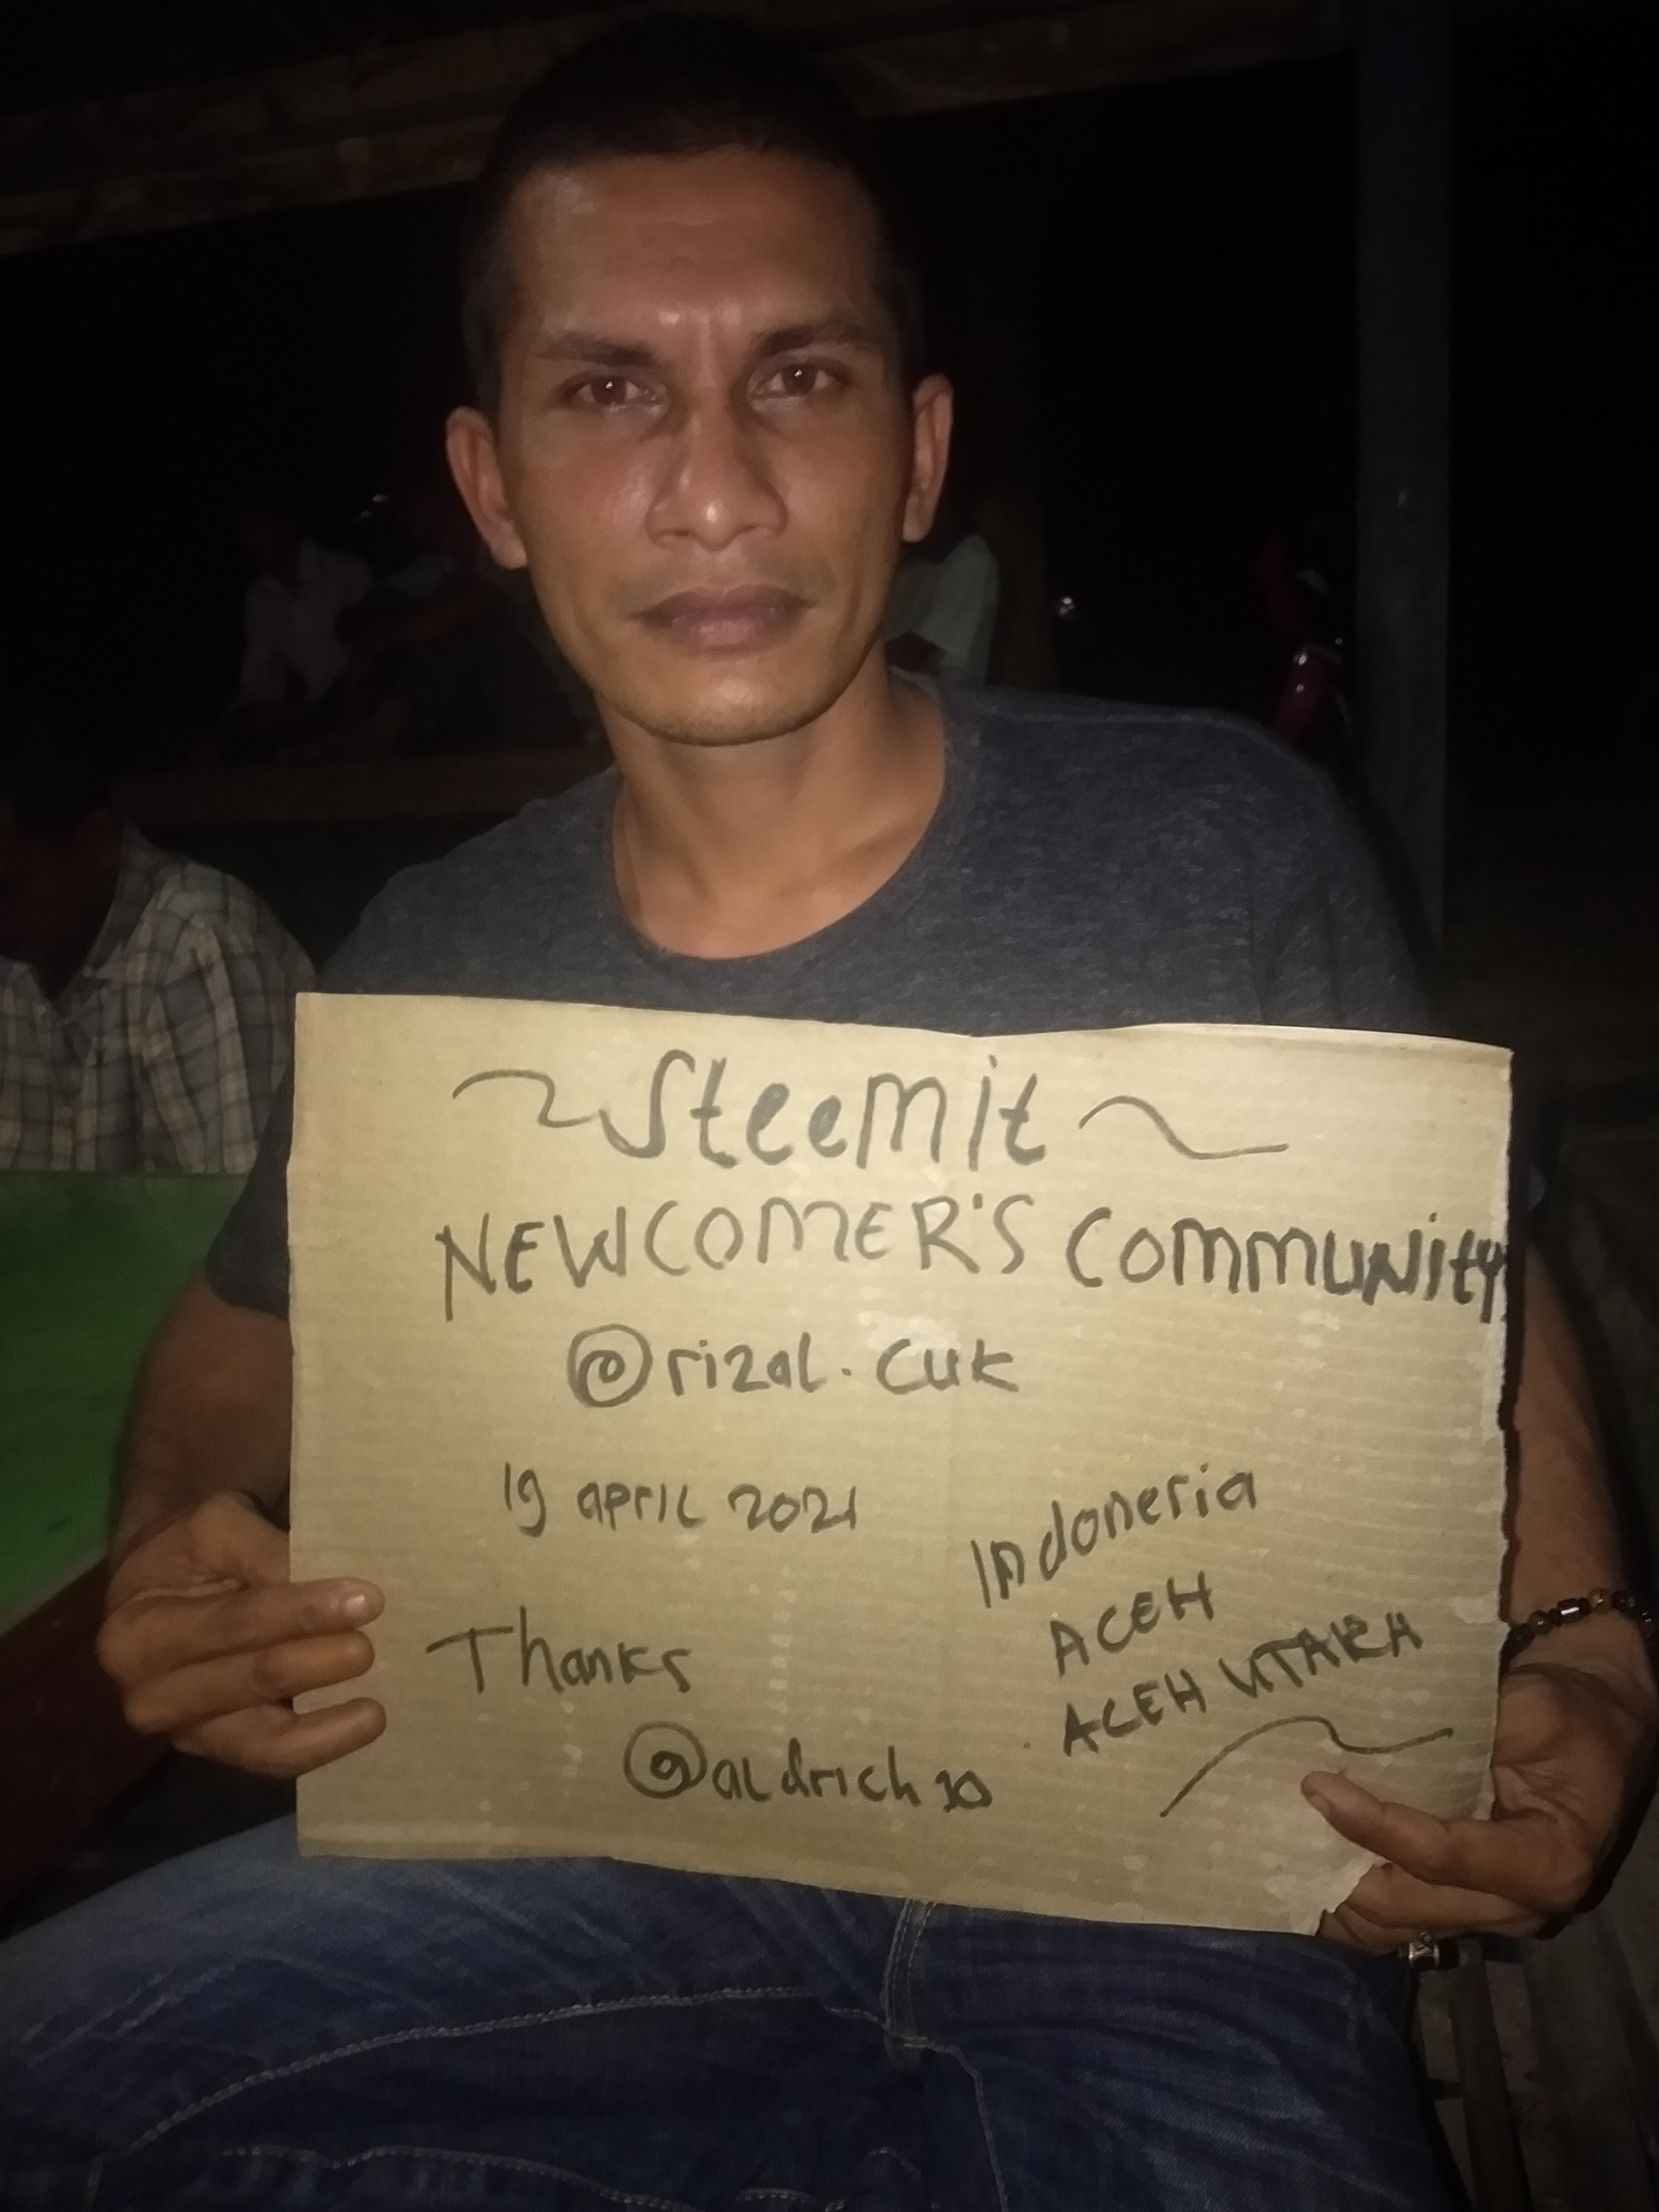 ~Steemit~
NEWCOMER'S Community
@rizal.cuk
19 april 2021
Indonesia
ACEH
ACEH UTARA
Thanks
@aldrich10